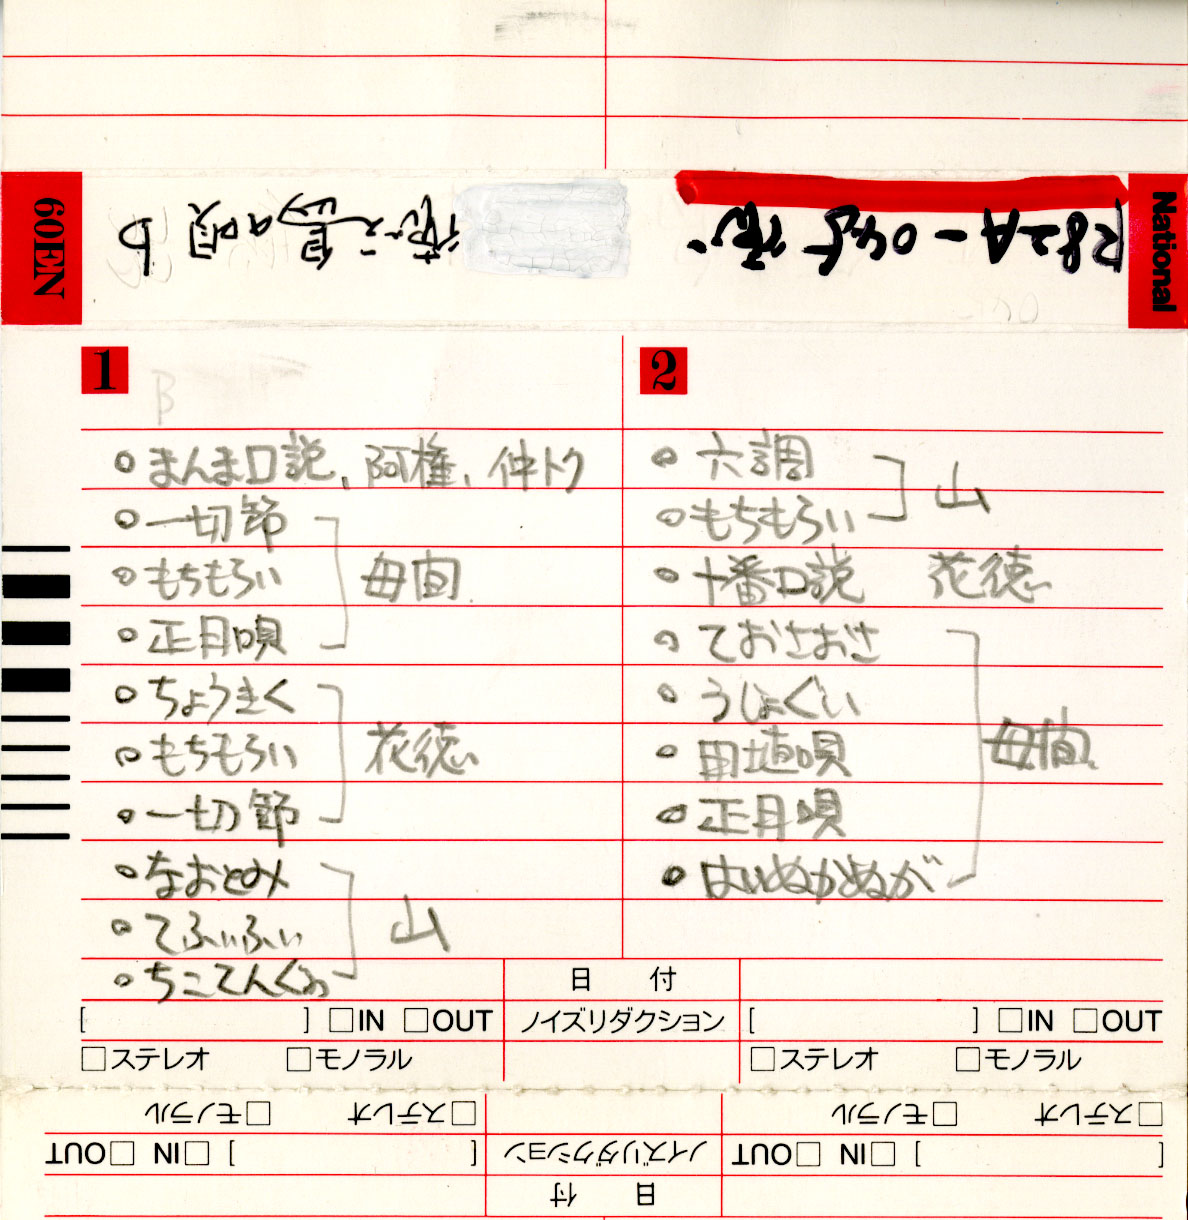 National
R82A-045 徳
徳之島の唄 b
60EN
1
B
まんま口説、阿権、仲トク
一切節
もちもろい
正月唄
母間
ちょうきく
もちもろい
一切節
花徳
なおとみ
てふいふい
ちこてんくゎ
山
2
六調
もちもろい
山
十番口説 花徳
ておさおさ
うじょぐい
田植唄
正月唄
はいぬかぬが
母間
日付
[ ] □IN □OUT ノイズリダクション [ ] □IN □OUT
□ステレオ □モノラル □ステレオ □モノラル
□ステレオ □モノラル □ステレオ □モノラル
[ ] □IN □OUT ノイズリダクション [ ] □IN □OUT
日付